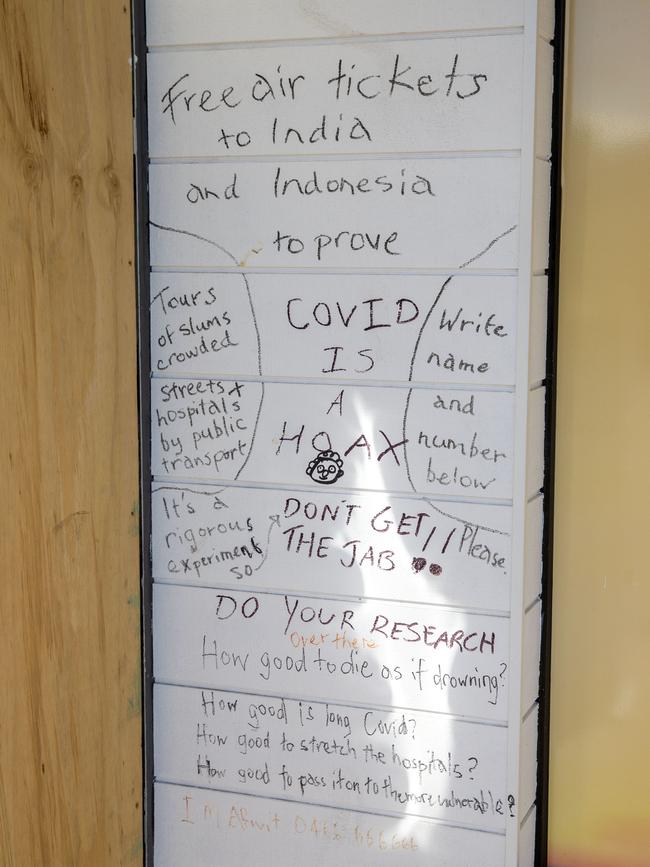 Free air tickets
to India
and Indonesia
to prove
Tours
of slums
crowded
streets +
hospitals
by public
transport
COVID
IS
A
HOAX
Write
name
and
number
below
Please.
It's a
rigorous
experiment
so
DON'T GET
THE JAB !!
DO YOUR RESEARCH
over there
How good to die as if drowning?
How good is long Covid?
How good to stretch the hospitals?
How good to pass it on to the more vulnerable?
I'm